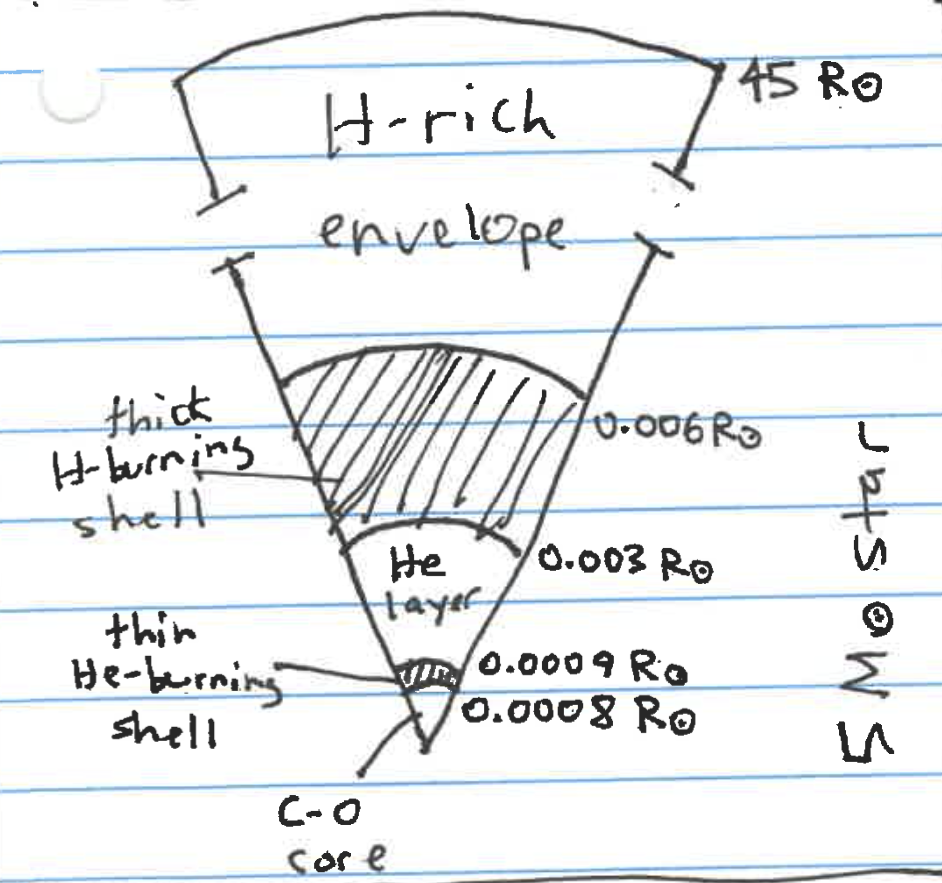 45 R⊙
H-rich
envelope
thick
H-burning
shell
0.006 R⊙
He
layer
0.003 R⊙
thin
He-burning
shell
0.0009 R⊙
0.0008 R⊙
C-O
core
5 M⊙ star